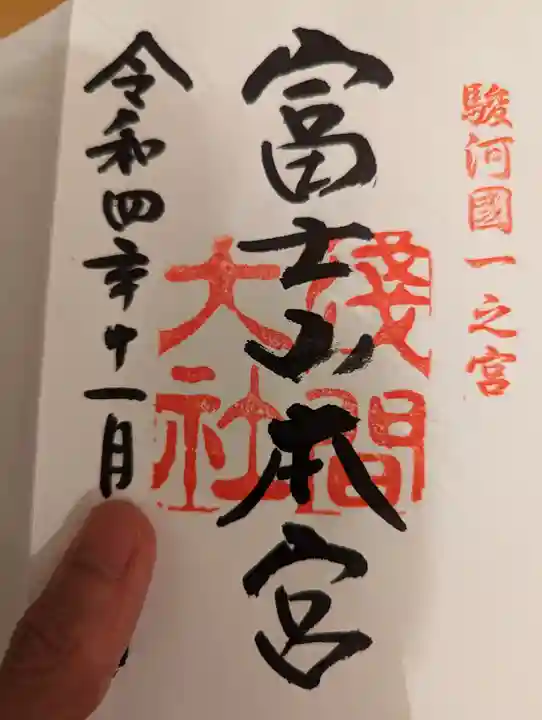 駿河國一之宮
富士山本宮
淺間
大社
令和四年十一月